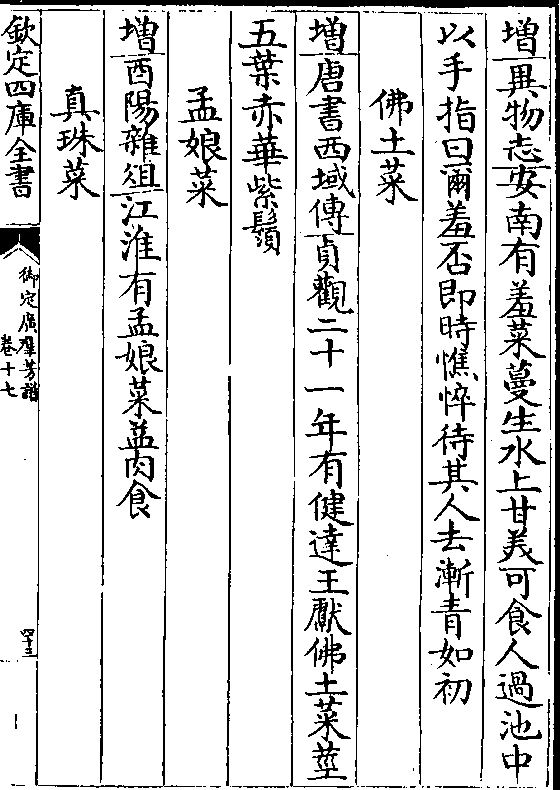 增異物志安南有羞菜蔓生水上甘美可食人過池中
以手指曰爾羞否即時憔悴待其人去漸青如初
佛土菜
增唐書西域傳貞觀二十一年有健達王獻佛土菜莖
五葉赤華紫鬚
孟娘菜
增酉陽雜俎江淮有孟娘菜益肉食
真珠菜
欽定四庫全書
御定廣羣芳譜
卷十七
四十三